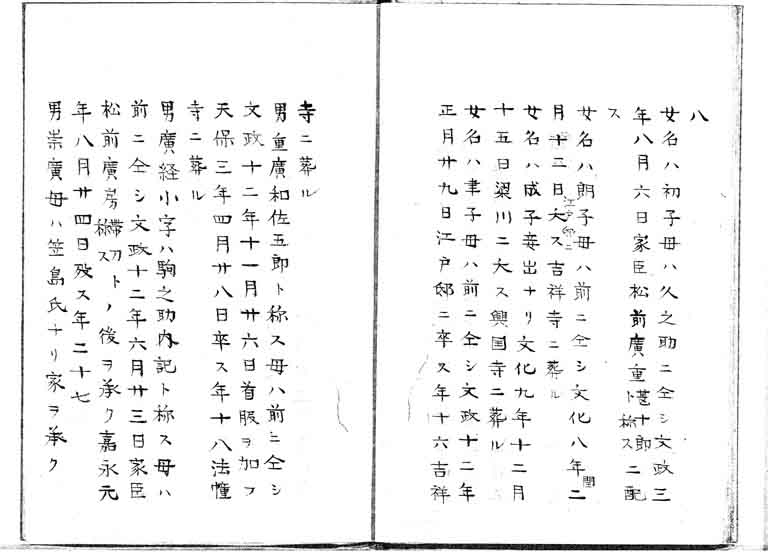 八
女名ハ初子母ハ久之助ニ仝シ文政三
年八月六日家臣松前廣重甚十郎ト称スニ配
ス
女名ハ朗子母ハ前ニ仝シ文化八年閏二
月十三日江戸邸ニ夭ス吉祥寺ニ葬ル
女名ハ成子妾出ナリ文化九年十二月
十五日梁川ニ夭ス興国寺ニ葬ル
女名ハ聿子母ハ前ニ仝シ文政十二年
正月廿九日江戸邸ニ卒ス年十六吉祥
寺ニ葬ル
男重廣和佐五郎ト称ス母ハ前ニ仝シ
文政十二年十一月廿六日首服ヲ加フ
天保三年四月廿八日卒ス年十八法幢
寺ニ葬ル
男廣経小字ハ駒之助内記ト称ス母ハ
前ニ仝シ文政十二年六月廿三日家臣
松前廣房帶刀ト称スノ後ヲ承ク嘉永元
年八月廿四日歿ス年二十七
男崇廣母ハ笠島氏ナリ家ヲ承ク